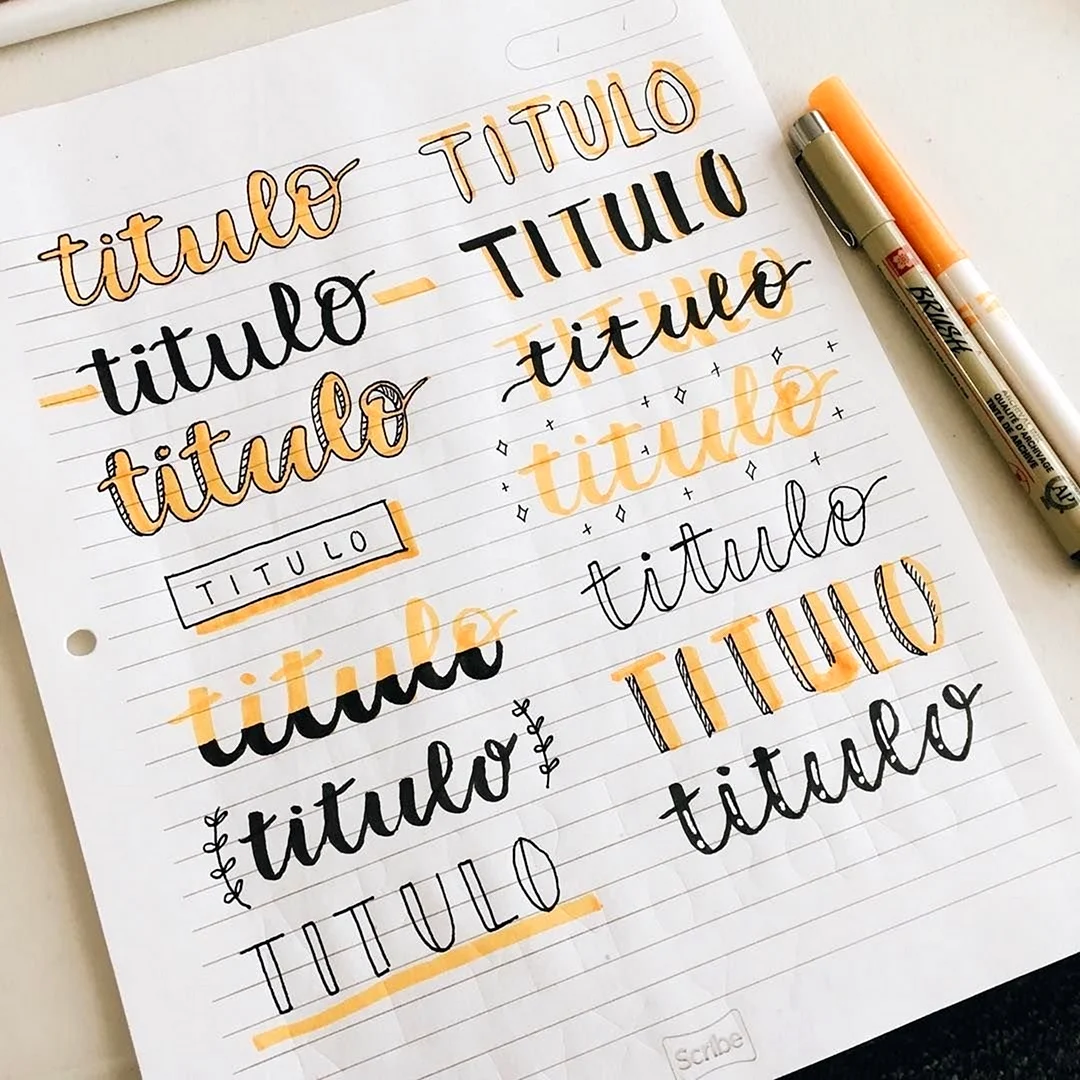 titulo
titulo
titulo
TITULO
titulo
titulo
TITULO
TITULO
TITULO
TITULO
titulo
titulo
titulo
TITULO
titulo
BRUSH
QUALITÉ D'ARCHIVAGE
AP
Scribe